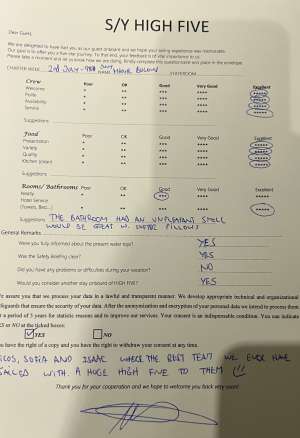 S/Y HIGH FIVE
Dear Guest,
We are delighted to have had you as our guest onboard and we hope your sailing experience was memorable.
Our goal is to offer you a five star journey. To that end, your feedback is of vital importance to us.
Please take a moment and let us know how we are doing. Kindly complete the questionnaire and place in the envelope
CHARTER WEEK: 2nd JULY - 9th JULY NAME STATEROOM
Crew Poor OK Good Very Good Excellent
Welcome * ** *** **** *****
Polite * ** *** **** *****
Availability * ** *** **** *****
Service * ** *** **** *****
Suggestions
Food Poor OK Good Very Good Excellent
Presentation * ** *** **** *****
Variety * ** *** **** *****
Quality * ** *** **** *****
Kitchen (clean) * ** *** **** *****
Suggestions
Rooms/ Bathrooms Poor OK Good Very Good Excellent
Ready * ** *** **** *****
Hotel Service
(Towels, Bed...) * ** *** **** *****
Suggestions THE BATHROOM HAD AN UNPLEASANT SMELL
WOULD BE GREAT W. SOFTER PILLOWS
General Remarks
Were you fully informed about the present water toys? YES
Was the Safety Briefing clear? YES
Did you have any problems or difficulties during your vacation? NO
Would you consider another stay onboard of HIGH FIVE? YES
assure you that we process your data in a lawful and transparent manner. We develop appropriate technical and organizational
safeguards that ensure the security of your data. After the anonymization and encryption of your personal data we intend to process them
a period of 3 years for statistic reasons and to improve our services. Your consent is an indispensable condition. You can indicate
YES or NO at the ticked boxes:
YES NO
You have the right of a copy and you have the right to withdraw your consent at any time.
SOFIA AND ISAAC WHERE THE BEST TEAM WE EVER HAVE
SAILED WITH. A HUGE HIGH FIVE TO THEM !!!
Thank you for your cooperation and we hope to welcome you back very soon!